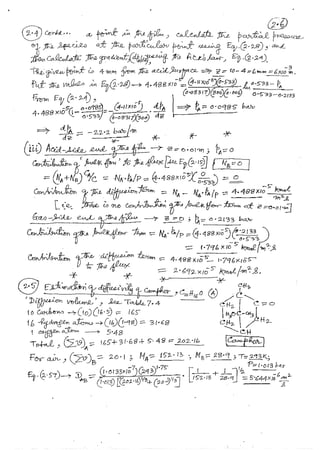 2.6
2.4 contd... a point in the film, calculate the partial pressure
of the species at the particular point using Eq.(2.28), and
then calculate the gradient using the Fick's law, Eq.(2.24).
The given point is 4 mm from the acid surface ⇒ z = 10-4 = 6 mm = 6×10⁻³ m.
Put the values in Eq(2.28) ⇒ 4.488×10⁻⁵ = (4.11×10⁻⁵)(0.533) / (0.08317)(300)(0.006) ln (0.533 - pA) / (0.533 - 0.2133)
From Eq(2.24),
4.488×10⁻⁵ (1 - 0.0985/0.533) = - (4.11×10⁻⁵) / (0.08317)(300) dpA/dz ⇒ pA = 0.0985 bar
⇒ dpA/dz = - 22.2 bar/m
* * *
(iii) Acid-side end of the film ⇒ z = 0.01 m; pA = 0
Contribution of 'bulk flow' to the flux [see Eq(2.15)] NB = 0
= (NA + NB) CA/C = NA·pA/P = (4.488×10⁻⁵)(0/0.533) = 0
Contribution of the diffusion term = NA - NA pA/P = 4.488×10⁻⁵ kmol/m²s
[i.e, there is no contribution of the bulk flow term at z = 0.01 m]
Gas-side end of the film ⇒ z = 0; pA = 0.2133 bar
Contribution of the bulk flow term = NA·pA/P = (4.488×10⁻⁵)(0.2133/0.533)
= 1.796×10⁻⁵ kmol/m².s
Contribution of the diffusion term = 4.488×10⁻⁵ - 1.796×10⁻⁵
to the flux = 2.692×10⁻⁵ kmol/m².s
* * *
2.5 Estimation of diffusivity of Camphor, C₁₀H₁₆O (A)
'Diffusion volume', see Table 7.4
10 carbons → (10)(16.5) = 165
16 hydrogen atoms → (16)(1.98) = 31.68
1 oxygen atom → 5.48
Total, (Σν)A = 165 + 31.68 + 5.48 = 202.16
CH₃ C CH₂ C=O H₃C-C-CH₃ CH₂ CH₂ CH
Camphor
For air, (Σν)B = 20.1; MA = 152.13; MB = 28.9; T = 293K;
P = 1.013 bar
Eq.(2.57) → DAB = (1.0133×10⁻⁷)(293)^1.75 / (1.013)[(202.16)^1/3 + (20.1)^1/3]² · [1/152.13 + 1/28.9]^1/2 = 5.644×10⁻⁶ m²/s